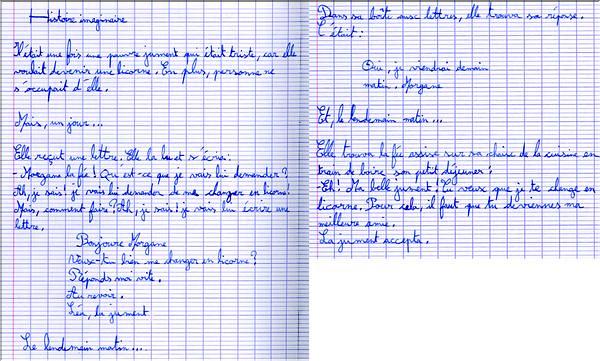 Histoire imaginaire
Il était une fois une pauvre jument qui était triste, car elle
voulait devenir une licorne. En plus, personne ne
s'occupait d'elle.
Mais, un jour...
Elle reçut une lettre. Elle la lut et s'écria:
- Morgane la fée! Qu'est-ce que je vais lui demander?
Ah, je sais! je vais lui demander de me changer en licorne!
Mais, comment faire? Ah, je sais! je vais lui écrire une
lettre.
Bonjoure Morgane
Veux-tu bien me changer en licorne?
Réponds moi vite.
Au revoir.
Léa, la jument
Le lendemain matin...
Dans sa boîte aux lettres, elle trouva sa réponse.
C'était:
Oui, je viendrai demain
matin. Morgane
Et, le lendemain matin...
Elle trouva la fée assise sur sa chaise de la cuisine en
train de boire son petit déjeuner:
- Eh! Ma belle jument! Tu veux que je te change en
licorne. Pour cela, il faut que tu deviennes ma
meilleure amie.
La jument accepta.